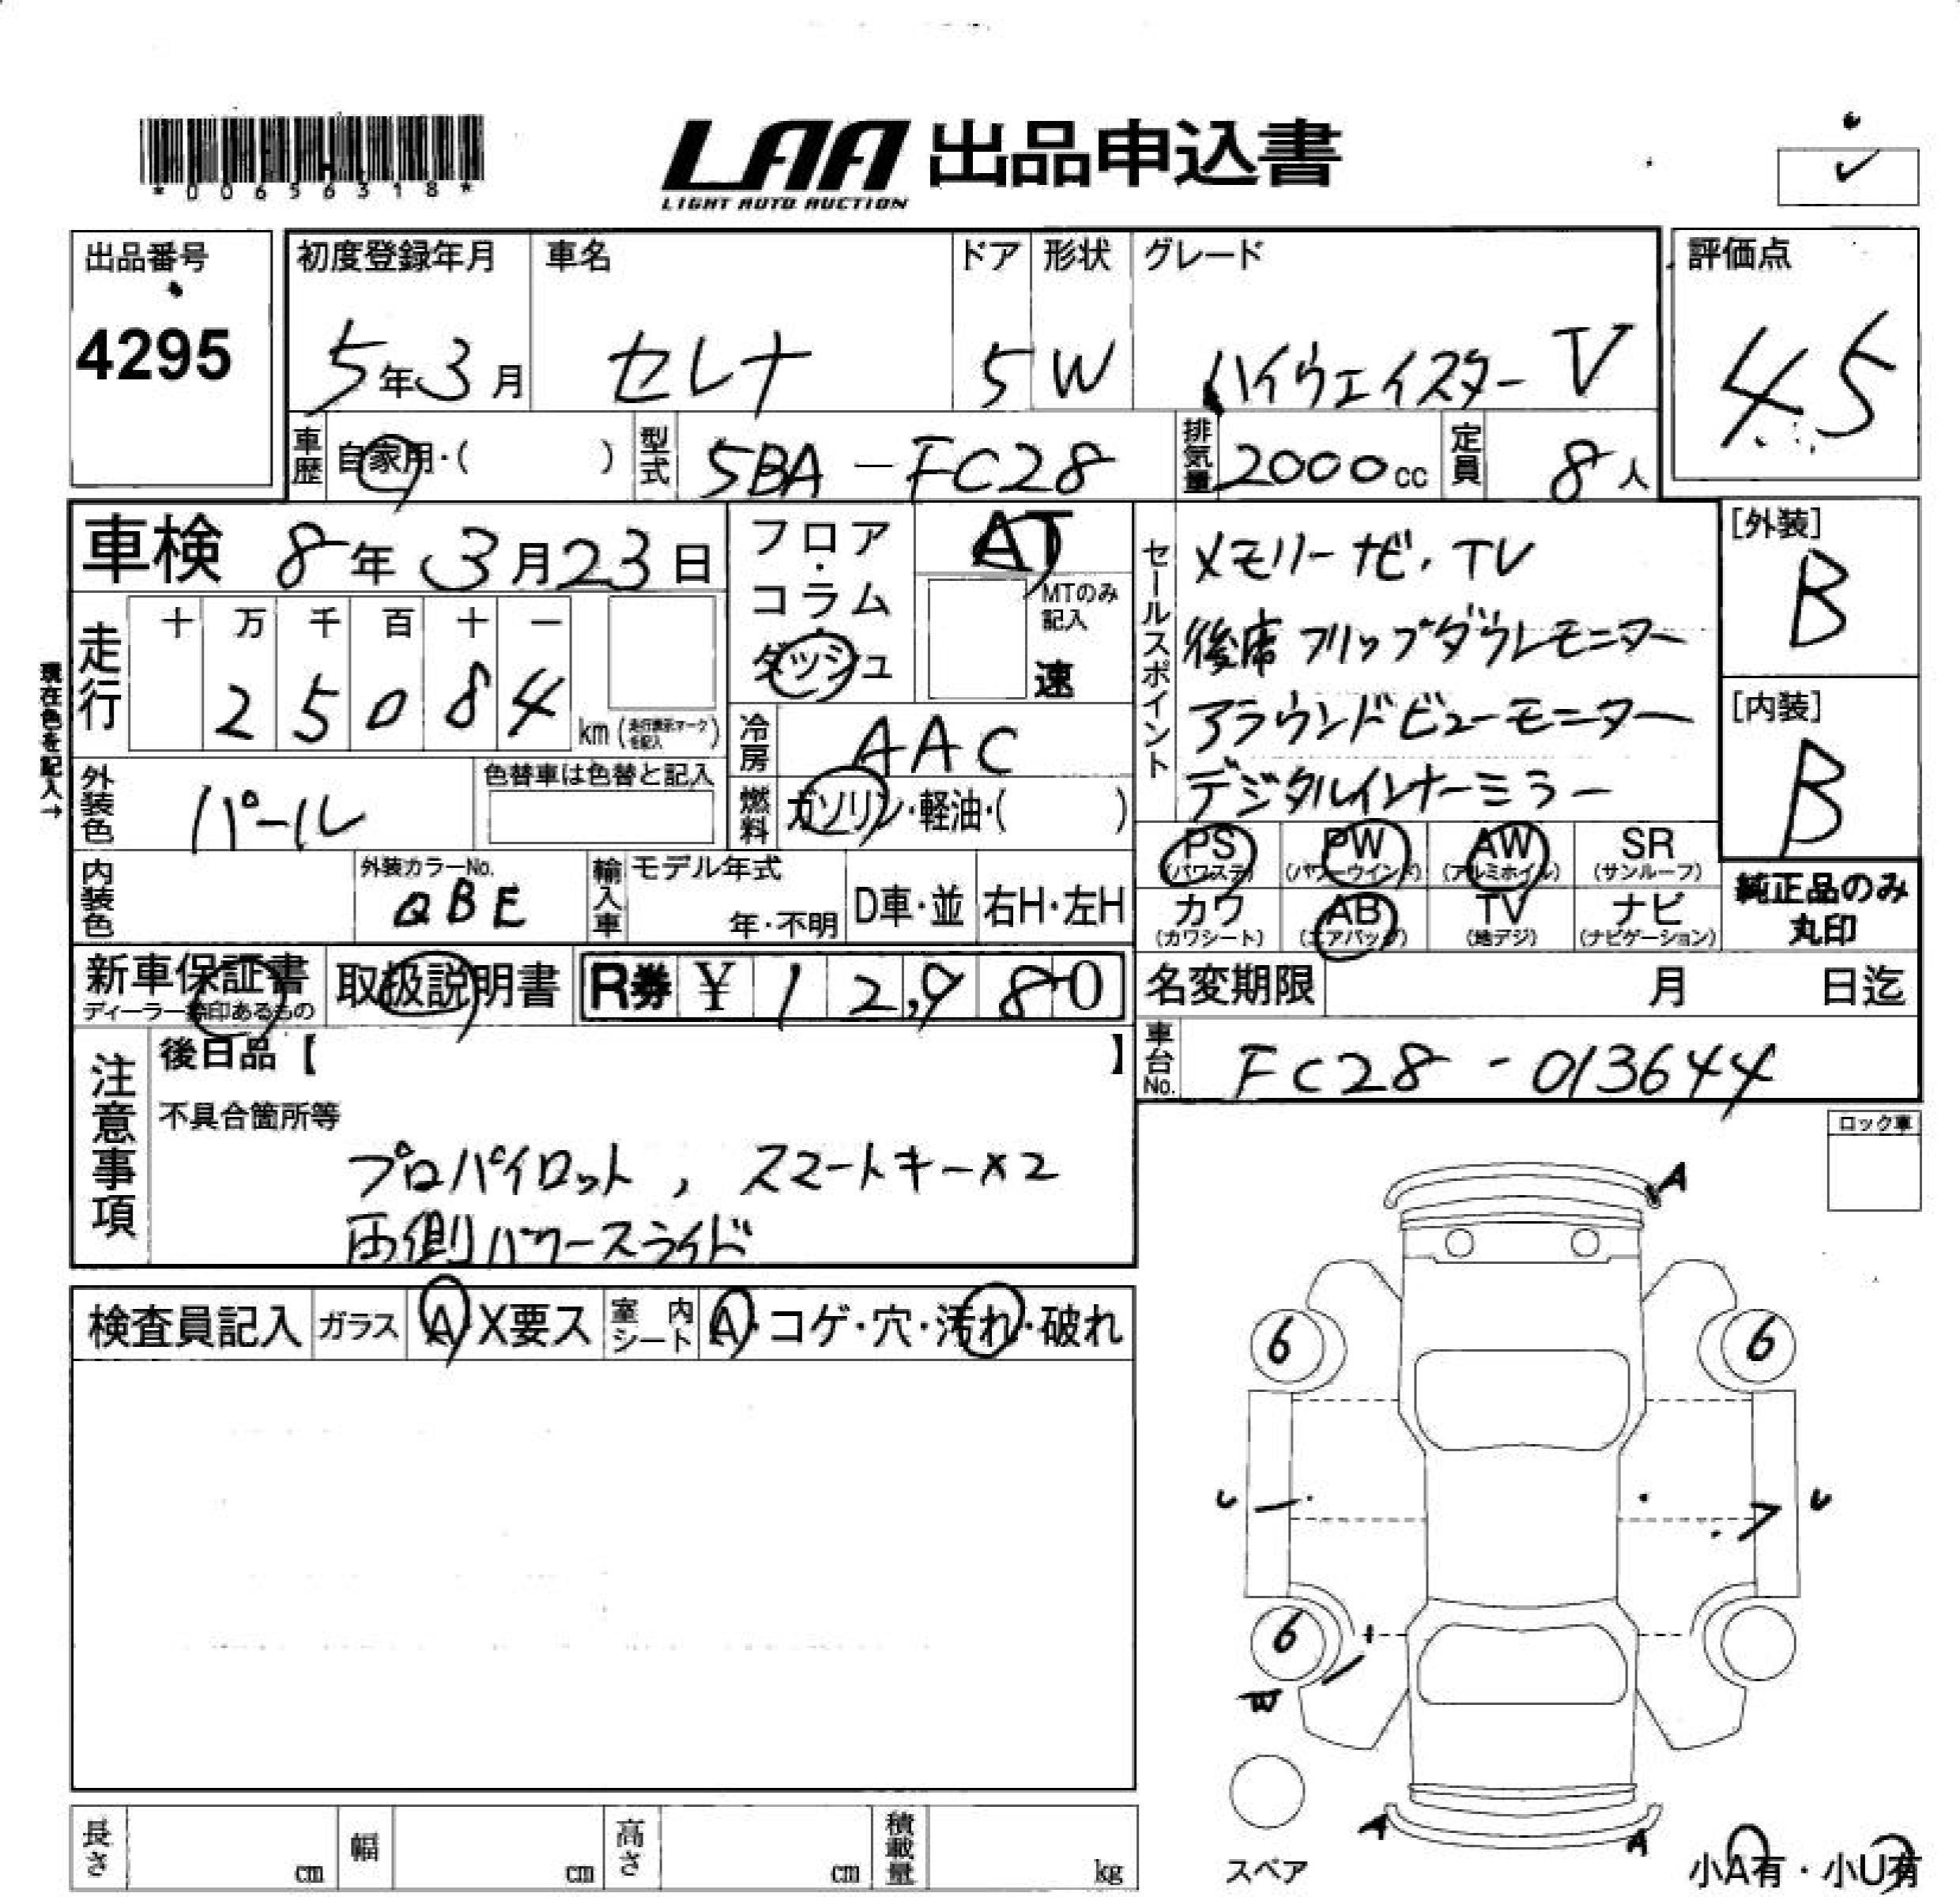 *00656318*
LAA 出品申込書
LIGHT AUTO AUCTION
出品番号
4295
初度登録年月
5年3月
車名
セレナ
ドア
5
形状
W
グレード
ハイウェイスター V
評価点
4.5
車歴
自家用・( )
型式
5BA-FC28
排気量
2000cc
定員
8人
車検 8年3月23日
フロア・コラム・ダッシュ
AT
MTのみ記入
速
セールスポイント
メモリーナビ・TV
後席フリップダウンモニター
アラウンドビューモニター
デジタルインナーミラー
[外装]
B
[内装]
B
現在色を記入→
走行
十 万 千 百 十 一
2 5 0 8 4 km (走行表示マークを記入)
冷房
AAC
外装色
パール
色替車は色替と記入
燃料
ガソリン・軽油・( )
内装色
外装カラーNo.
QBE
輸入車
モデル年式
年・不明
D車・並
右H・左H
PS (パワステ)
PW (パワーウインド)
AW (アルミホイル)
SR (サンルーフ)
カワ (カワシート)
AB (エアバッグ)
TV (地デジ)
ナビ (ナビゲーション)
純正品のみ丸印
新車保証書
ディーラー捺印あるもの
取扱説明書
R券 ¥ 12,980
名変期限 月 日迄
車台No.
FC28-013644
注意事項
後日品【 】
不具合箇所等
プロパイロット, スマートキー×2
両側パワースライド
ロック車
検査員記入
ガラス
A・X要ス
室内シート
A・コゲ・穴・汚れ・破れ
A
6 6
U U
6
W
A A
スペア
小A有・小U有
長さ cm
幅 cm
高さ cm
積載量 kg